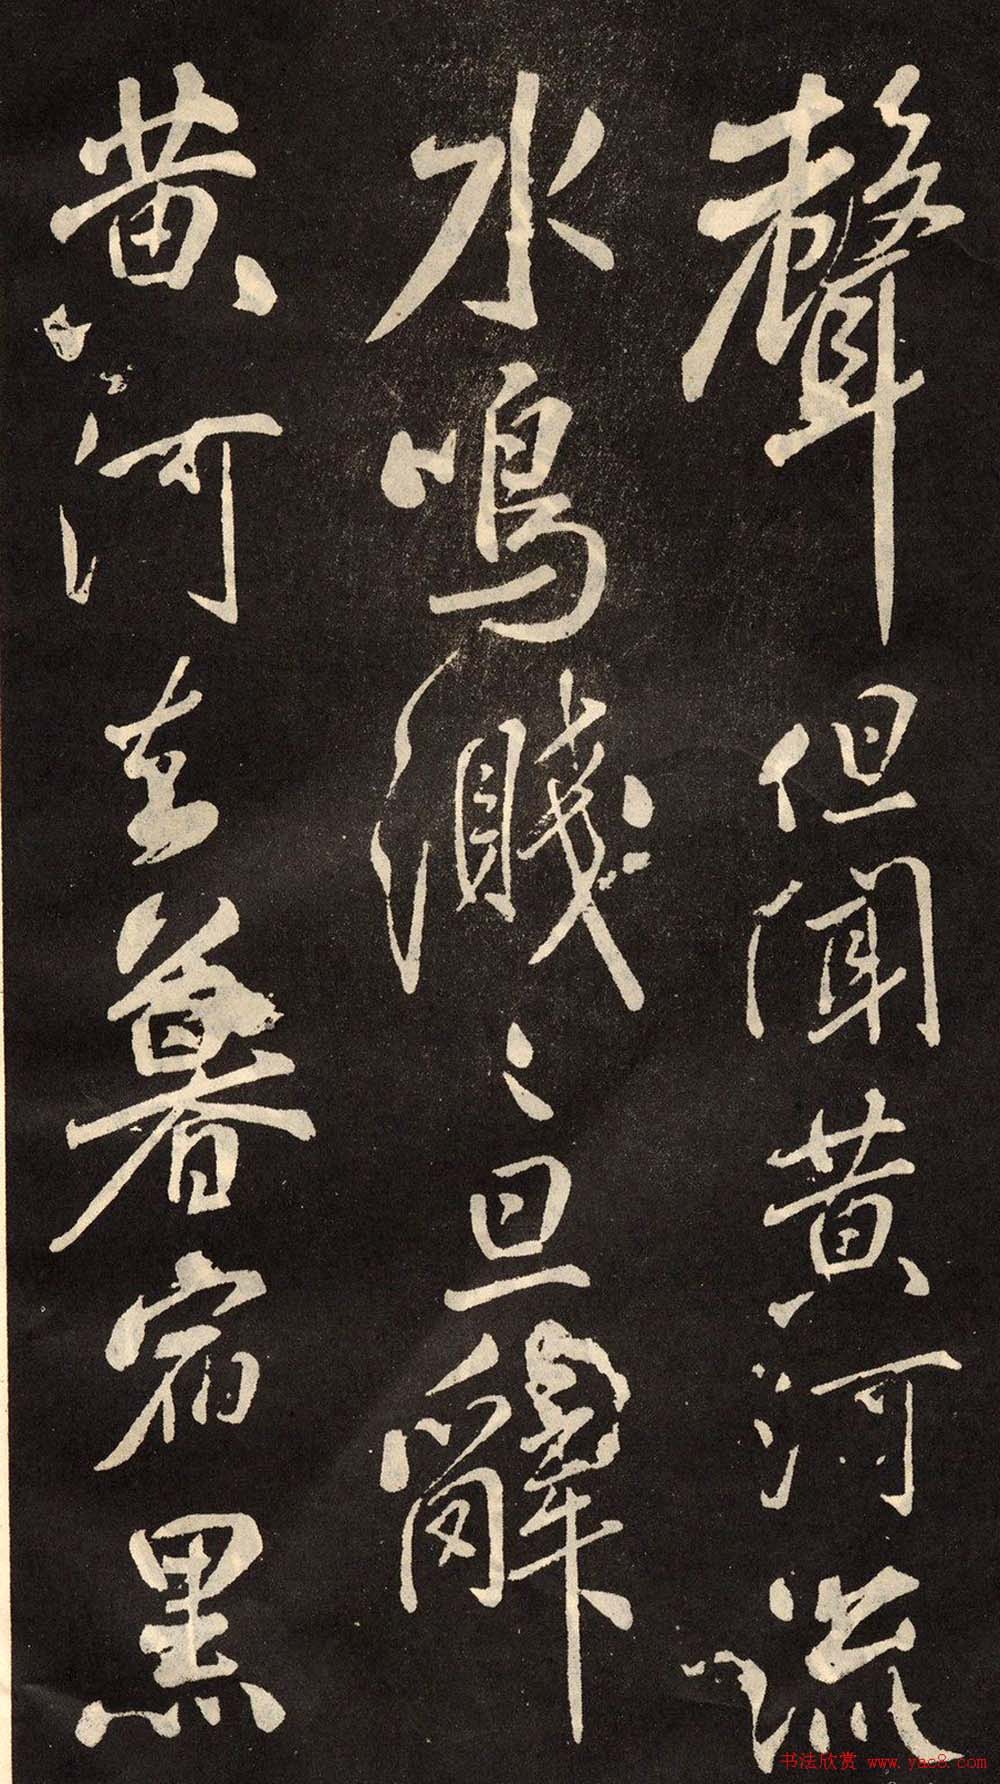 聲但聞黃河流
水鳴濺〻旦辭
黃河去暮宿黑
书法欣赏 www.yac8.com